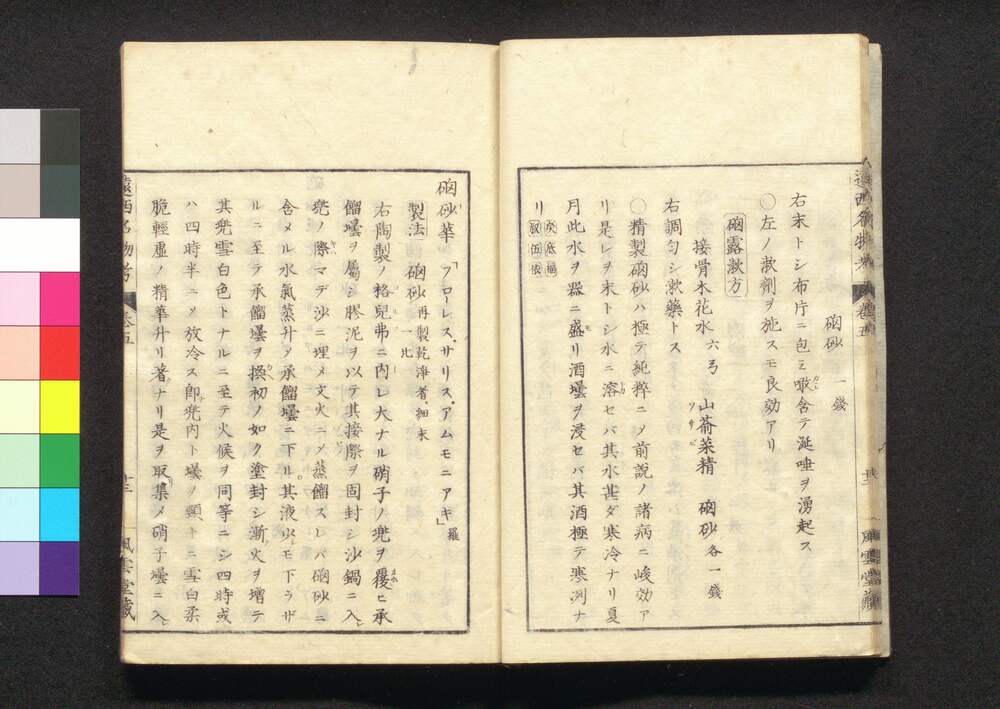 硇砂 一錢
右末トシ布片ニ包ミ噉含テ涎唾ヲ湧起ス
〇左ノ漱劑ヲ施スモ良効アリ
硇露漱方
接骨木花水 六弓 山葥菜精 硇砂 各一錢
右調勻シ漱藥トス
〇精製硇砂ハ極テ純粹ニメ前說ノ諸病ニ峻効ア
リ是レヲ末トシ水ニ溶セバ其水甚ダ寒冷ナリ夏
月此水ヲ器ニ盛リ酒壜ヲ浸セバ其酒極テ寒冽ナ
リ
遠西名物考 卷五 風雲堂藏
硇砂華「フローレス、サリス、アムモニアキ」羅
製法 硇砂 再製乾淨者、細末 一比
右陶製ノ格兒弗ニ内レ大ナル硝子ノ兠ヲ覆ヒ承
餾壜ヲ屬シ膠泥ヲ以テ其接際ヲ固封シ沙鍋ニ入
兠ノ際マデ沙ニ埋メ文火ニメ蒸餾スレバ硇砂ニ
含メル水氣蒸升メ承餾壜ニ下ル其液少モ下ラザ
ルニ至テ承餾壜ヲ換初ノ如ク塗封シ漸火ヲ増テ
其兠雪白色トナルニ至テ火候ヲ同等ニシ四時或
ハ四時半ニメ放冷ス即兠内ト壜ノ頸トニ雪白柔
脆輕虛ノ精華升リ著ナリ是ヲ取集メ硝子壜ニ入
遠西名物考 卷五 十三 風雲堂藏